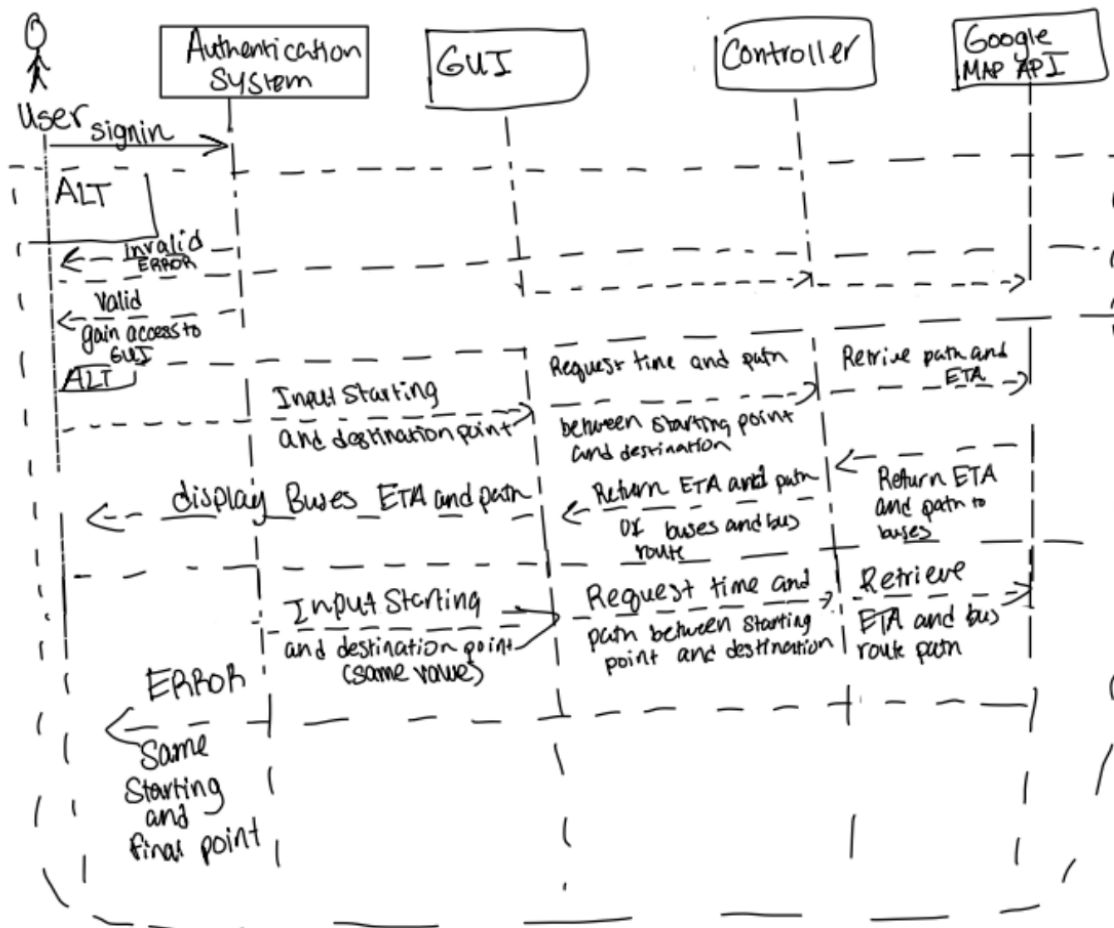 User
Authentication
System
GUI
Controller
Google
MAP API
signin
ALT
Invalid
ERROR
Valid
gain access to
GUI
ALT
Input Starting
and destination point
Request time and path
between starting point
and destination
Retrive path and
ETA
Return ETA
and path to
buses
Return ETA and path
of buses and bus
route
display Buses ETA and path
Input Starting
and destination point
(same value)
Request time and
path between starting
point and destination
Retrieve
ETA and bus
route path
ERROR
Same
Starting
and
final point